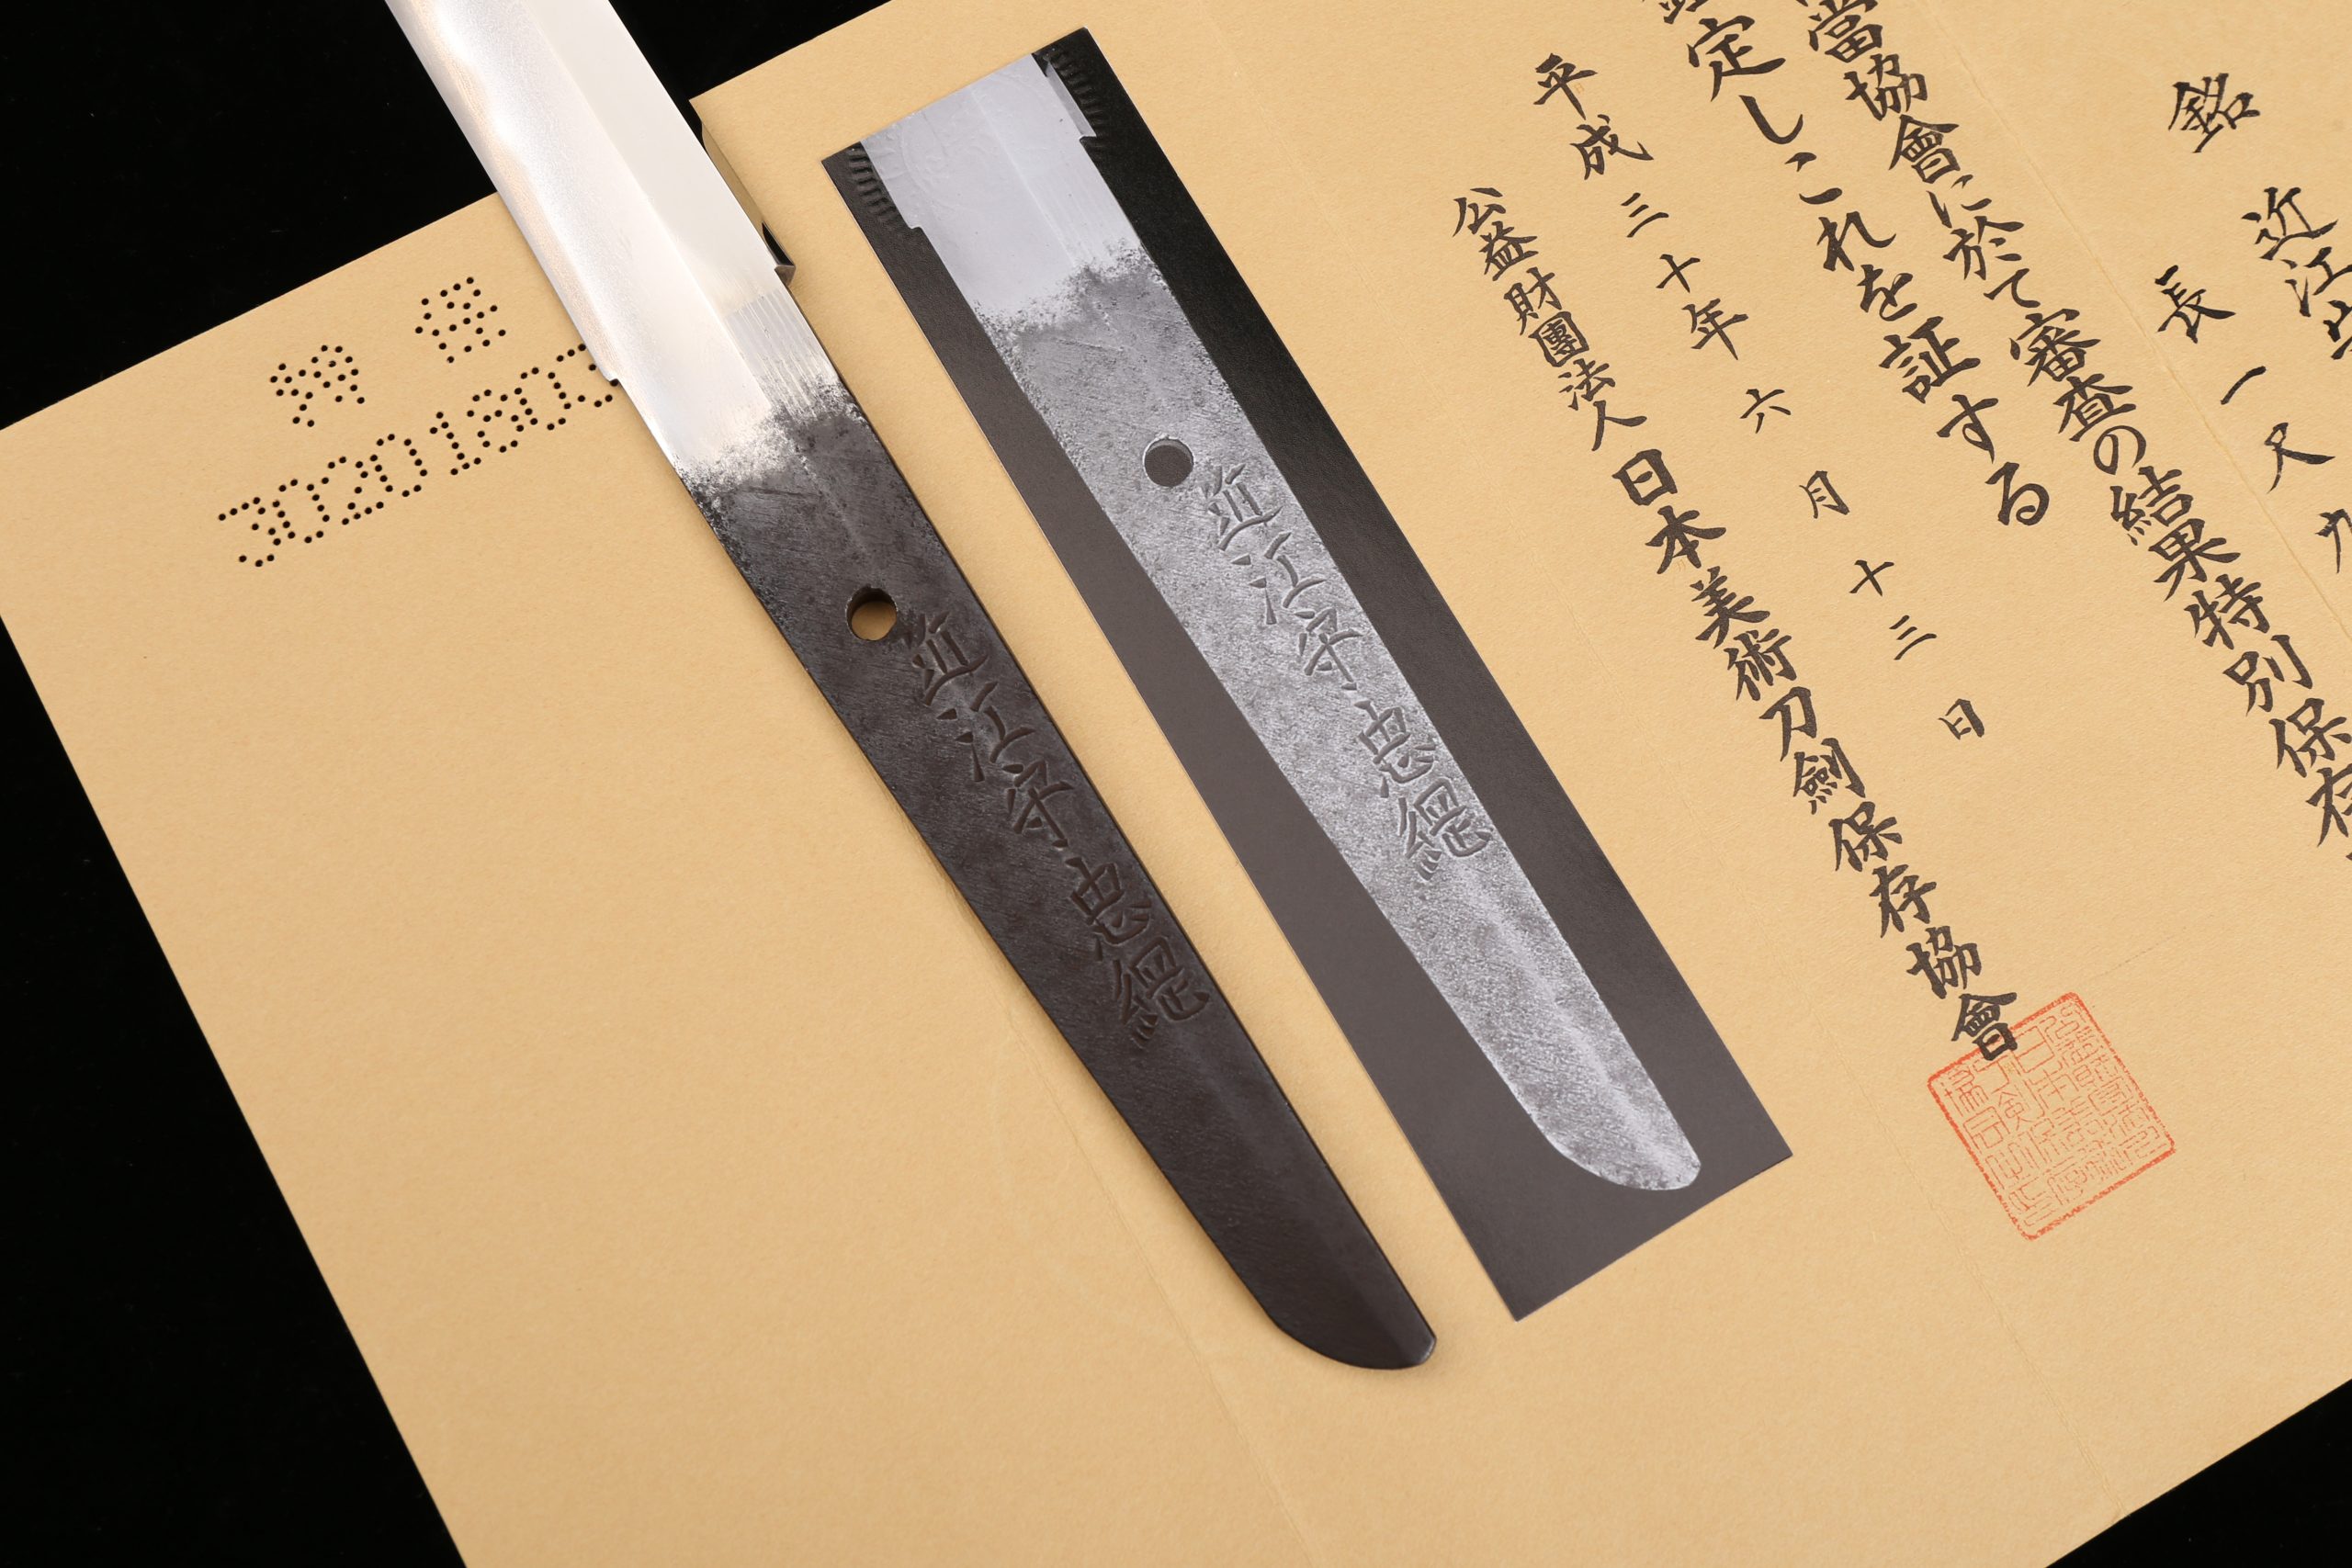 銘 近江守
長一尺九
當協會に於て審査の結果特別保存
定しこれを証する
平成三十年六月十三日
公益財團法人日本美術刀劍保存協會
近江守忠綱
近江守忠綱
特保